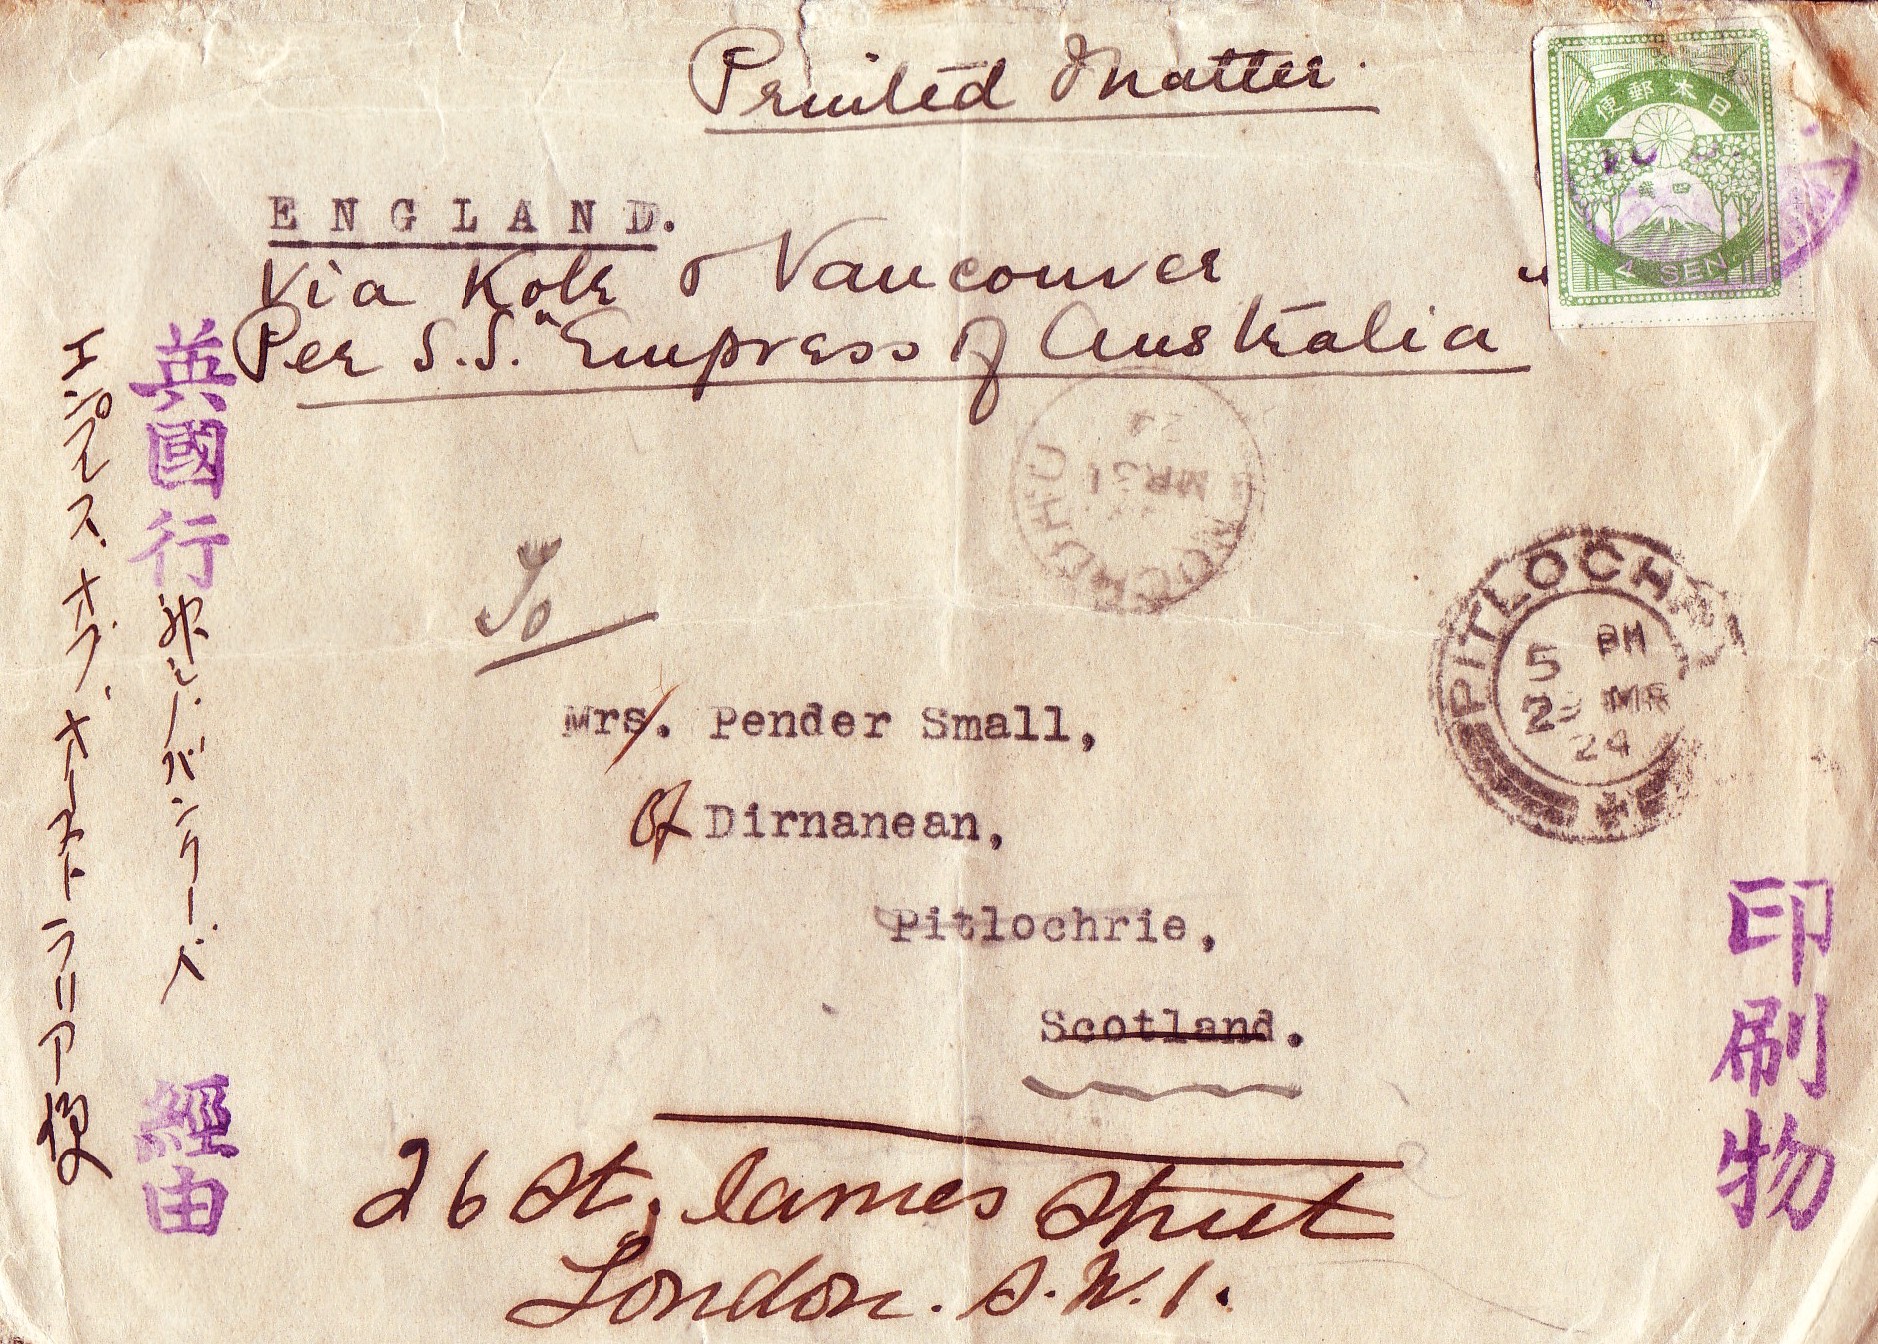 Printed Matter.
日本郵便
4 SEN
ENGLAND.
Via Kobe & Vancouver
Per S.S. "Empress of Australia
英國行
神戸バンクーバ
經由
エンプレス、オブ、オーストラリア便
MR 31
24
PITLOCHRY
5 PM
MR
24
To
Mrs. Pender Small,
Of Dirnanean,
Pitlochrie,
Scotland.
26 St. James Street
London. S.W.1.
印刷物